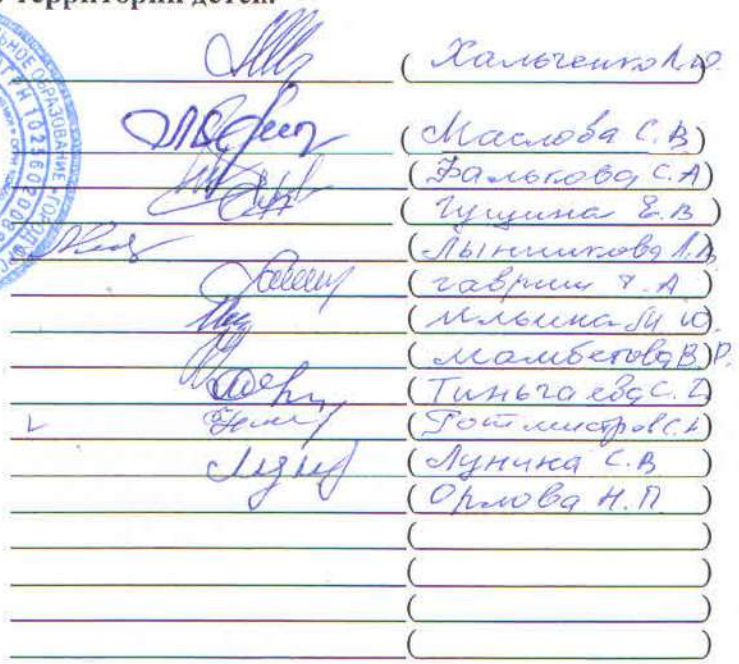 территории детей.
(Хальченко Л.Ю.)
(Маслова С.В)
(Фалькова С.А)
(Гущина Е.В)
(Лынникова Л.В)
(Гавриш Т.А)
(Ильина М Ю.)
(Мамбетова В.Р.)
(Тиньгаева С.Г)
(Ротмистров С.А)
(Лунина С.В)
(Орлова Н.П)
ОБРАЗОВАНИЕ «ГОРОД